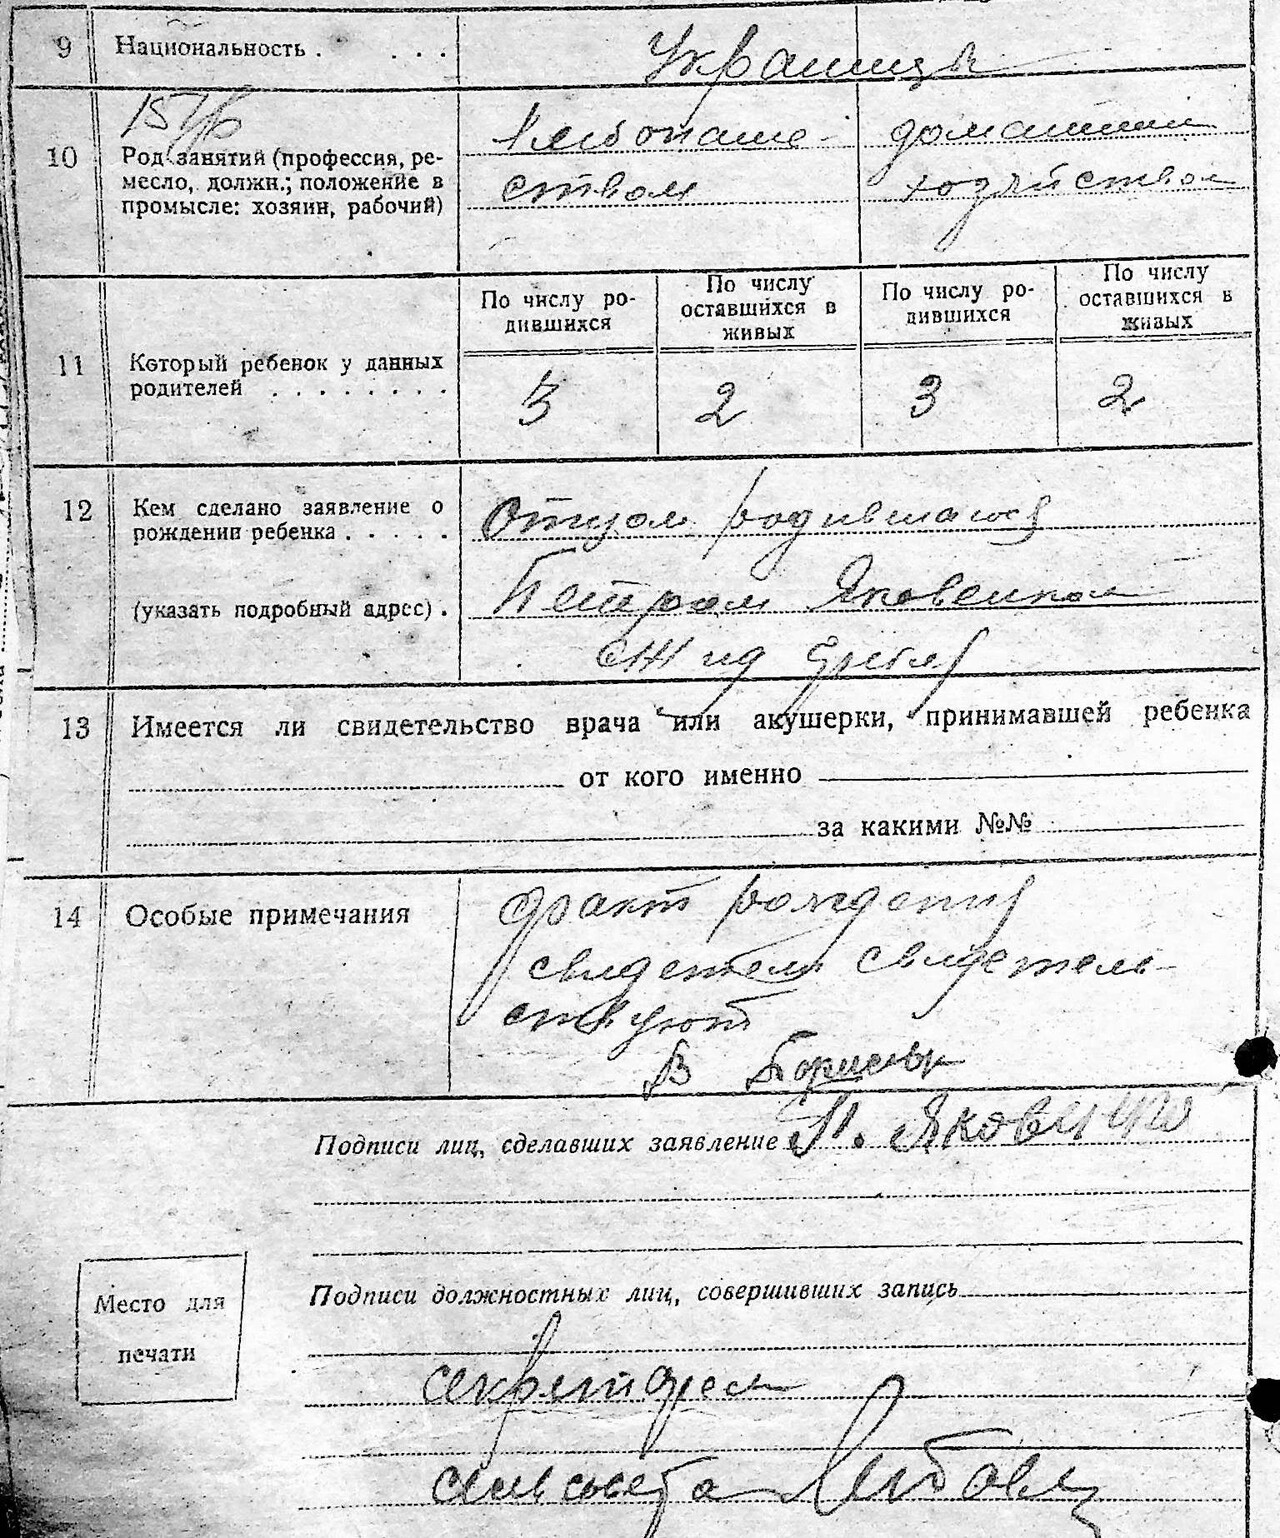 9 Национальность . . . .
Украинцы
157/6
10 Род занятий (профессия, ре-
месло, должн.; положение в
промысле: хозяин, рабочий)
Хлебопаше-
ством
домашним
хозяйством
По числу ро-
дившихся
По числу
оставшихся в
живых
По числу ро-
дившихся
По числу
оставшихся в
живых
11 Который ребенок у данных
родителей . . . . . . . .
3 2 3 2
12 Кем сделано заявление о
рождении ребенка . . . . .
(указать подробный адрес) .
Отцом родившагося
Петром Яковенком
13 Имеется ли свидетельство врача или акушерки, принимавшей ребенка
от кого именно
за какими №№
14 Особые примечания
факт рождения
свидетели свидетель-
ствуют
В
Подписи лиц, сделавших заявление П. Яковенко
Подписи должностных лиц, совершивших запись
Место для
печати
секретарем
сельсовета